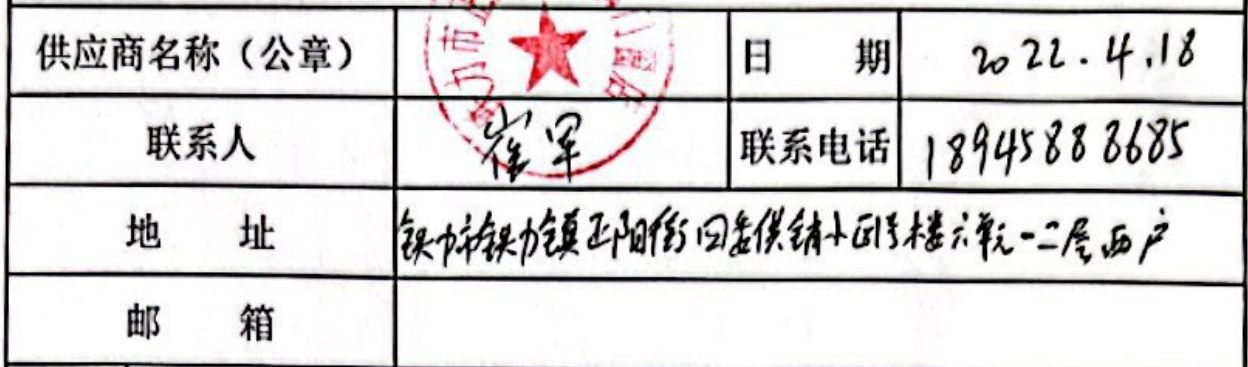 供应商名称（公章）
日 期 2022.4.18
联系人 崔军 联系电话 18945888685
地 址 铁力市铁力镇正阳街四委供销小区1号楼六单元一二层西户
邮 箱